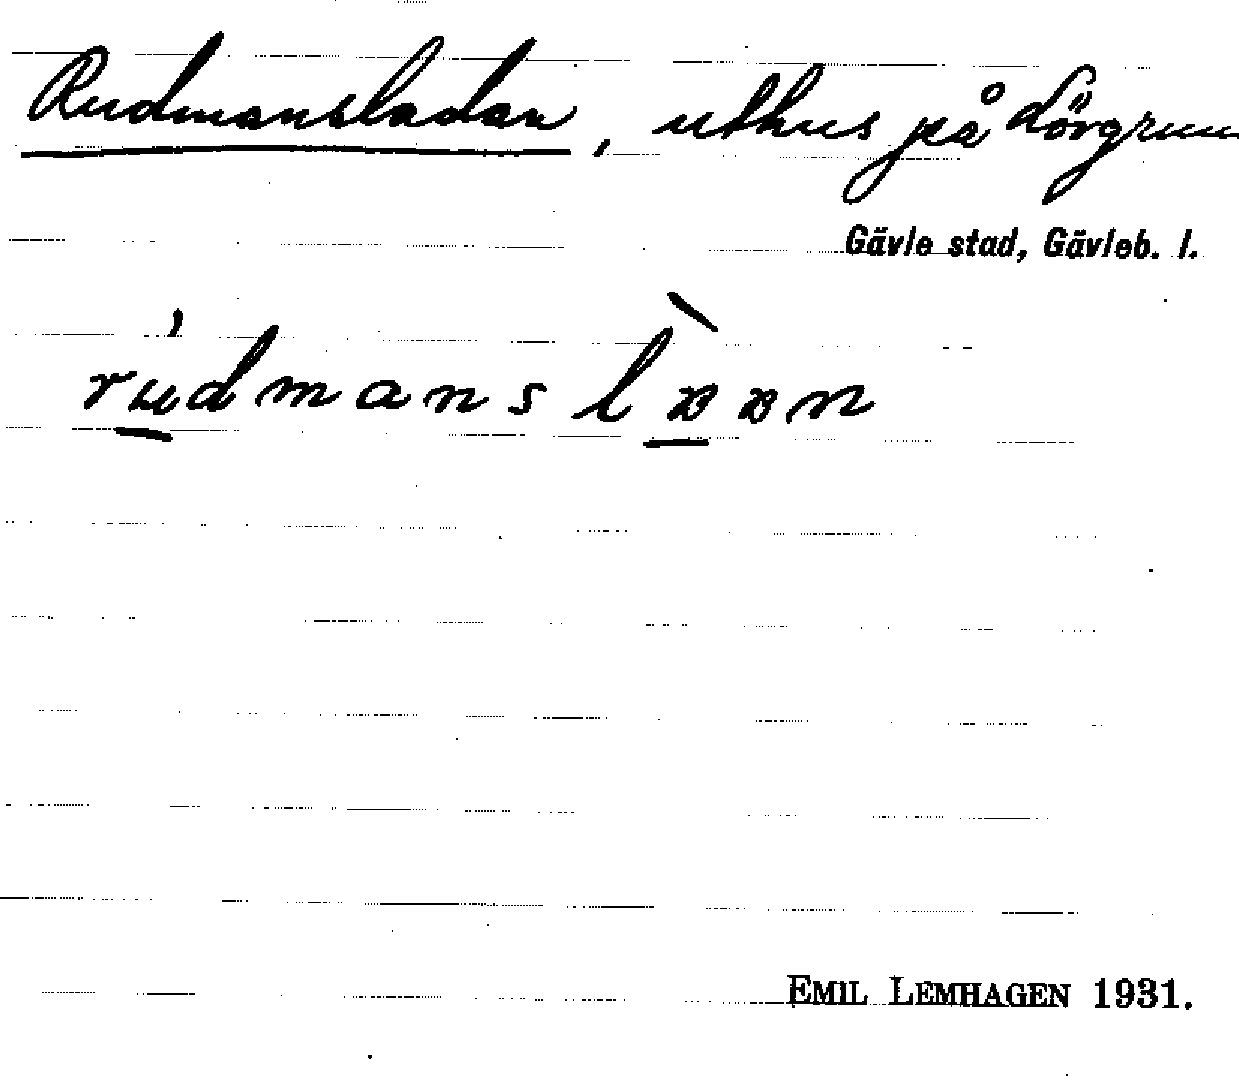 Rudmansladan, uthus på Lörgrun
Gävle stad, Gävleb. l.
EMIL LEMHAGEN 1931.